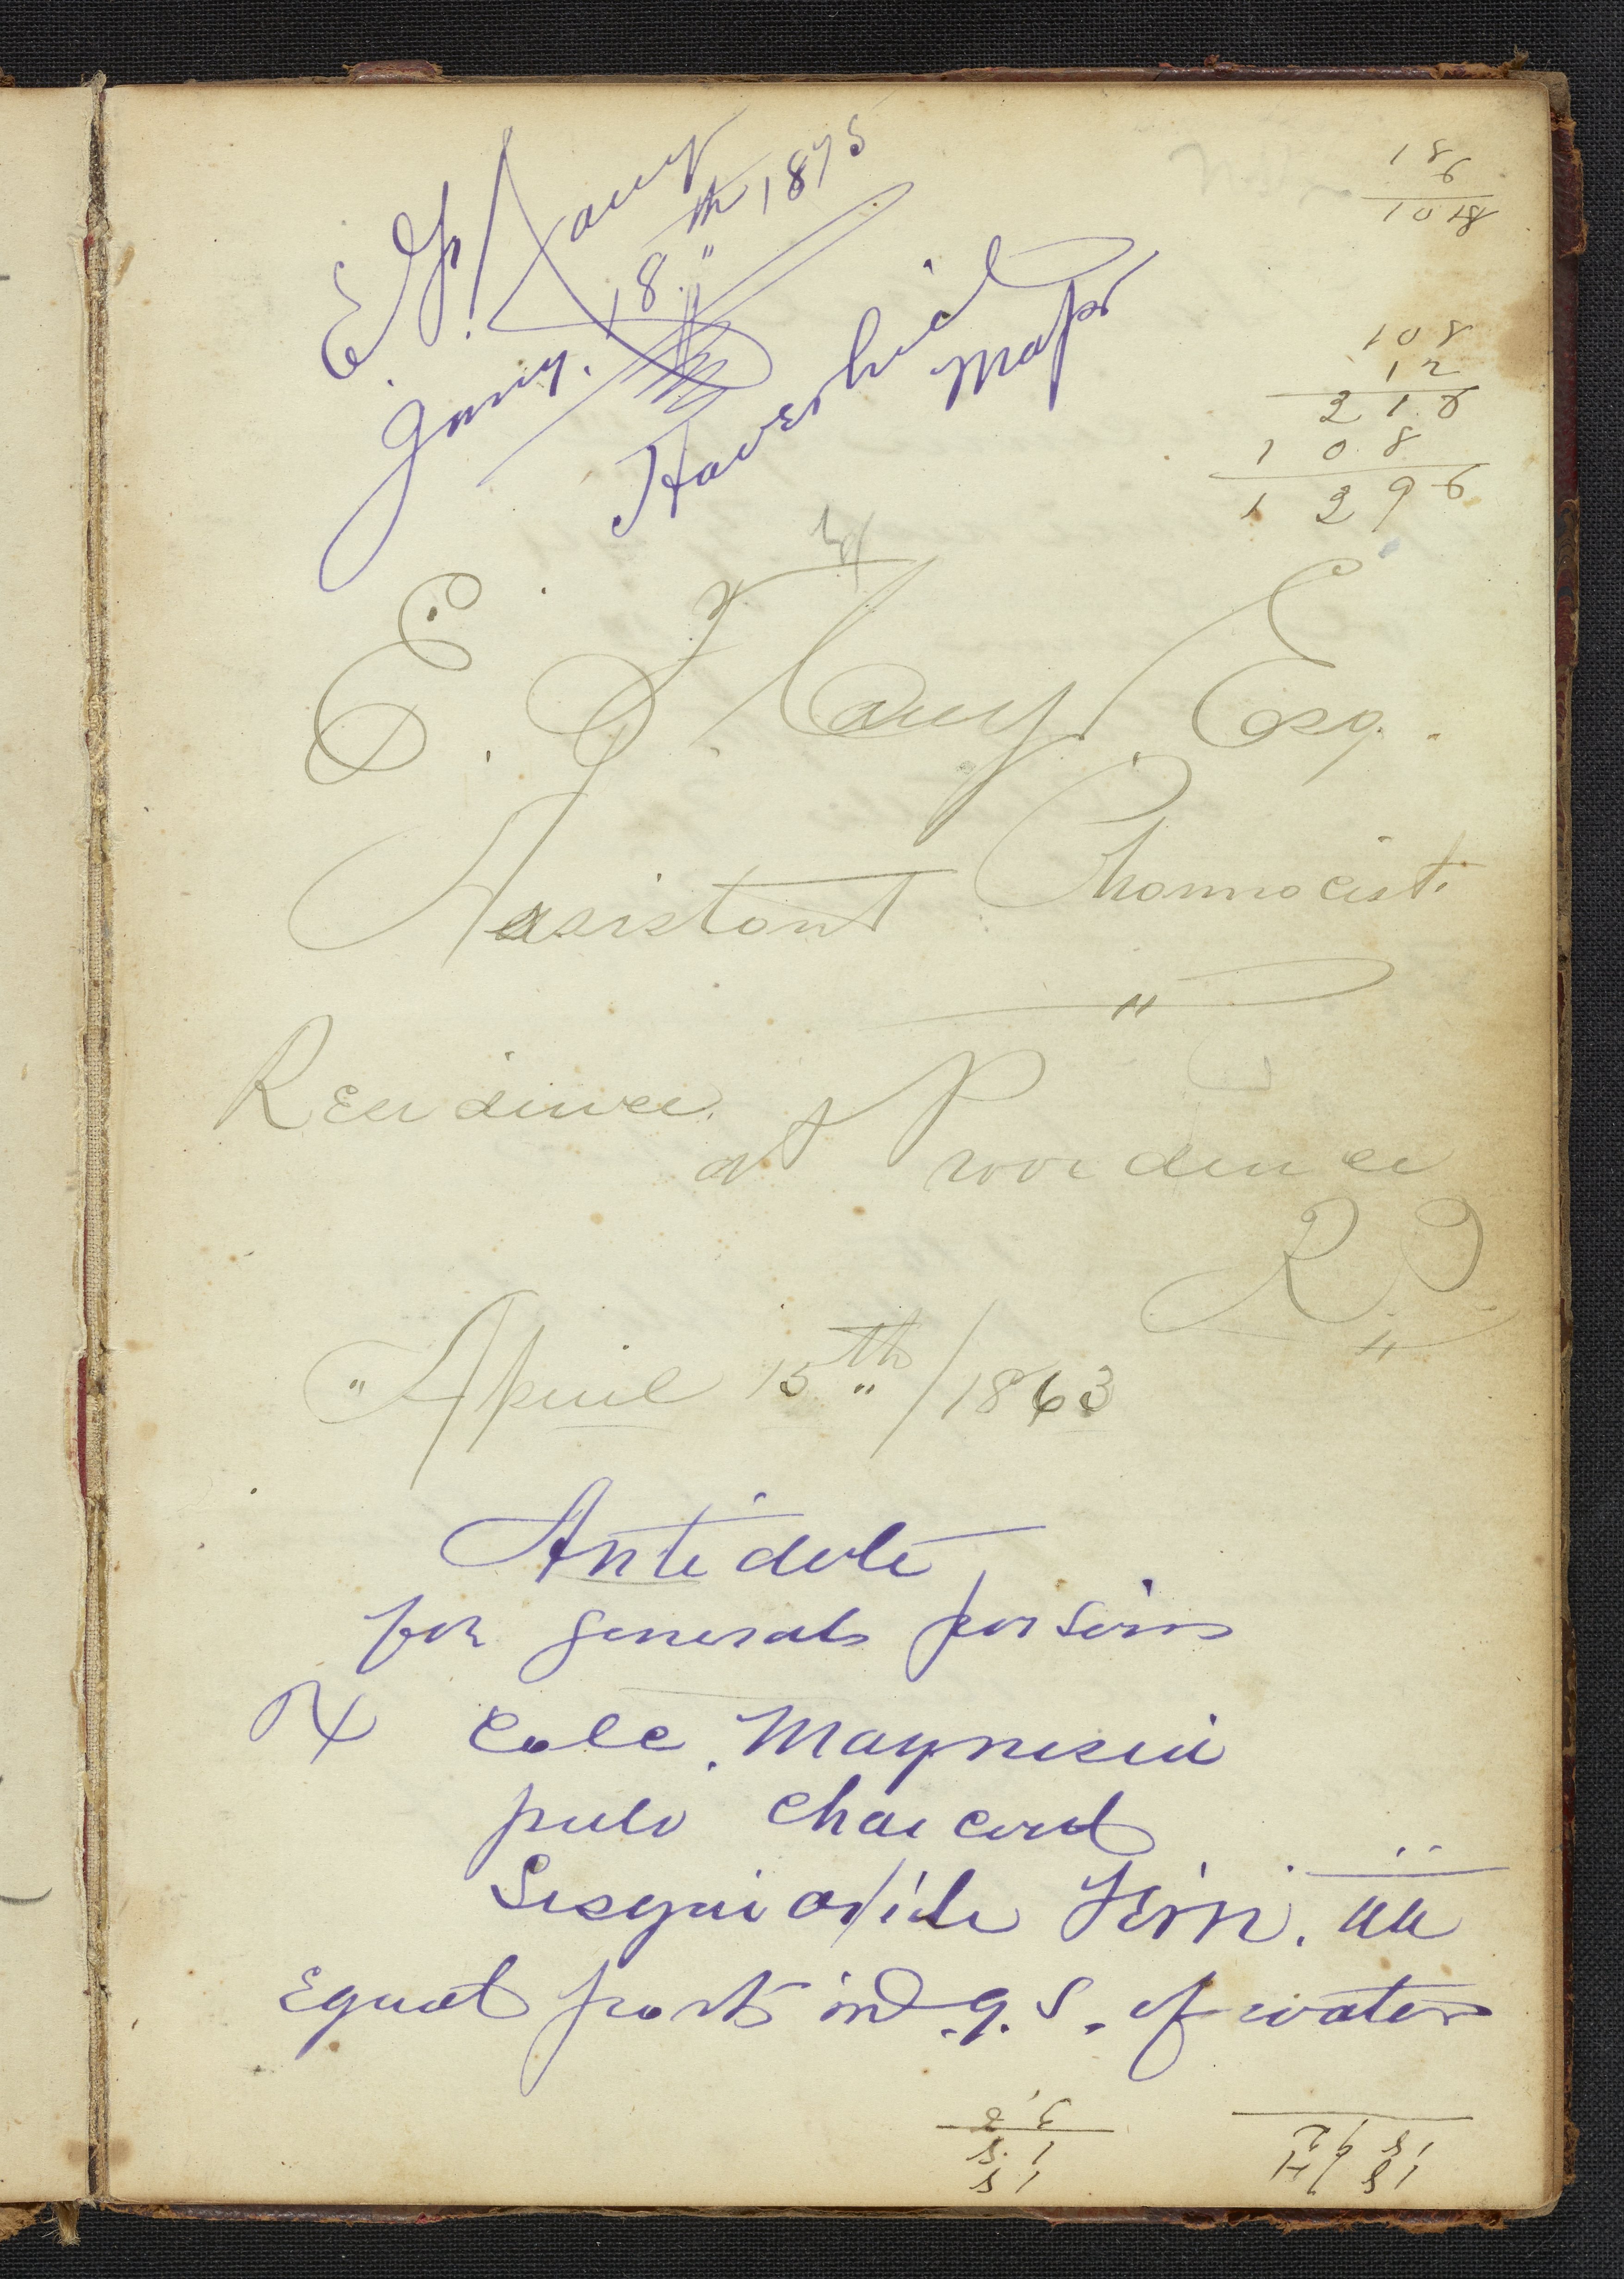 18
6
1018
108
12
216
108
1296
Jany. 18th 1875
Haverhill
Mass
E. F. Esq.
Assistant Pharmacist.
Residence
at Providence
R I
"April 15th / 1863
Antidote
for general poisons
℞ Calc. Magnesia
pulv Charcoal
Sesqui oxide Ferri. aa
Equal parts in q. s. of water
18
18